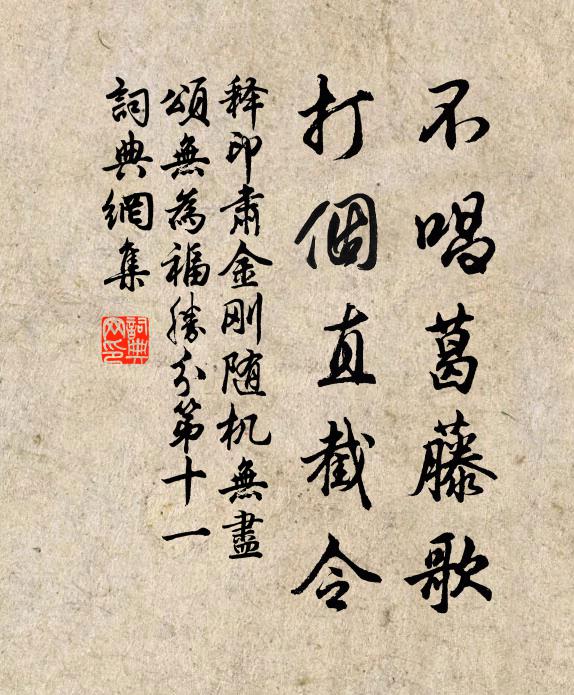 不唱葛藤歌
打個直截令
释印肃金刚随机無盡
頌無為福勝分第十一
詞典網集
詞典
网印